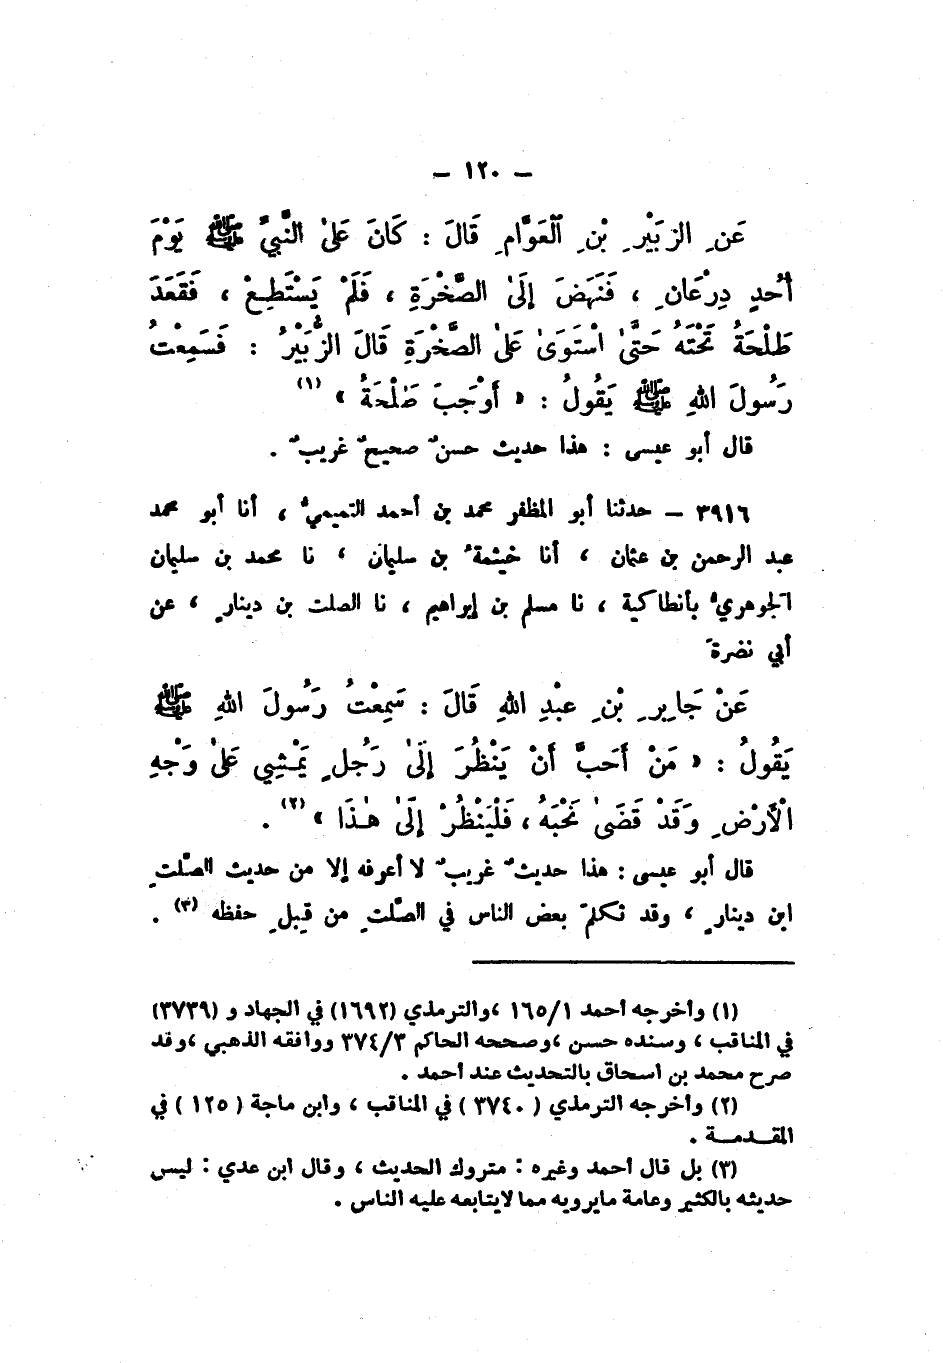 – ١٢٠ –
عَنِ الزبَيْرِ بْنِ الْعَوَّامِ قَالَ : كَانَ عَلَى النَّبِيِّ ﷺ يَوْمَ
أُحُدٍ دِرْعَانِ ، فَنَهَضَ إِلَى الصَّخْرَةِ ، فَلَمْ يَسْتَطِعْ ، فَقَعَدَ
طَلْحَةُ تَحْتَهُ حَتَّى اسْتَوَى عَلَى الصَّخْرَةِ قَالَ الزُّبَيْرُ : فَسَمِعْتُ
رَسُولَ اللهِ ﷺ يَقُولُ : « أَوْجَبَ طَلْحَةُ » (١)
قال أبو عيسى : هذا حديث حسنٌ صحيحٌ غريبٌ .
٣٩١٦ – حدثنا أبو المظفر محمد بن أحمد التميميُّ ، أنا أبو محمد
عبد الرحمن بن عثمان ، أنا خيثمةُ بن سليمان ، نا محمد بن سليمان
الجوهريُّ بأنطاكية ، نا مسلم بن إبراهيم ، نا الصلت بن دينارٍ ، عن
أبي نضرةَ
عَنْ جَابِرِ بْنِ عبْدِ اللهِ قَالَ : سَمِعْتُ رَسُولَ اللهِ ﷺ
يَقُولُ : « مَنْ أَحَبَّ أَنْ يَنْظُرَ إِلَى رَجُلٍ يَمْشِي عَلَى وَجْهِ
الْأَرْضِ وَقَدْ قَضَى نَحْبَهُ ، فَلْيَنْظُرْ إِلَى هٰذَا » (٢) .
قال أبو عيسى : هذا حديثٌ غريبٌ لا أعرفه إلا من حديث الصَّلت
ابن دينارٍ ، وقد تكلمَ بعض الناس في الصَّلتِ من قِبلِ حفظه (٣) .
(١) وأخرجه أحمد ١٦٥/١ ،والترمذي (١٦٩٢) في الجهاد و (٣٧٣٩)
في المناقب ، وسنده حسن ،وصححه الحاكم ٣٧٤/٣ ووافقه الذهبي ،وقد
صرح محمد بن اسحاق بالتحديث عند أحمد .
(٢) وأخرجه الترمذي ( ٣٧٤٠ ) في المناقب ، وابن ماجة ( ١٢٥ ) في
المقدمة .
(٣) بل قال أحمد وغيره : متروك الحديث ، وقال ابن عدي : ليس
حديثه بالكثير وعامة مايرويه مما لايتابعه عليه الناس .